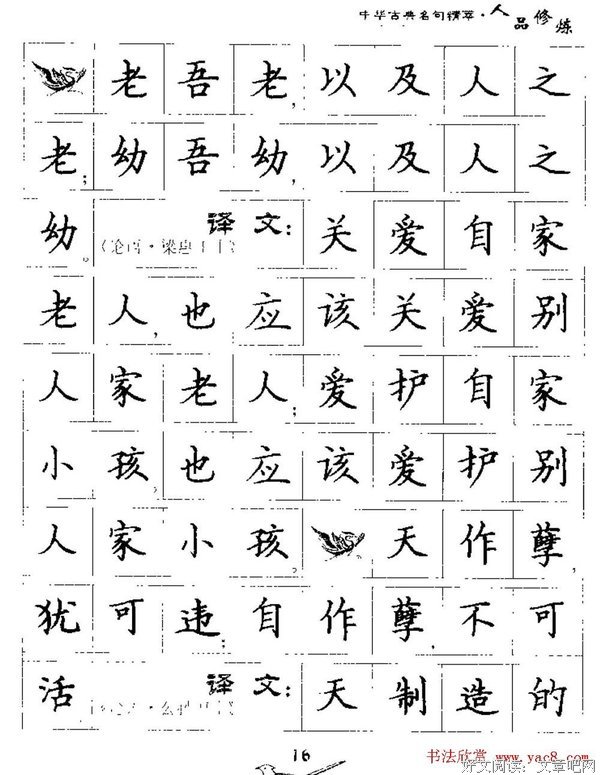 中华古典名句精萃·人品修炼
老吾老,以及人之
老;幼吾幼,以及人之
幼。 译文:关爱自家
老人,也应该关爱别
人家老人;爱护自家
小孩,也应该爱护别
人家小孩。天作孽,
犹可违;自作孽,不可
活 译文:天制造的
16
书法欣赏 www.yac8.com
好文阅读:文章吧网